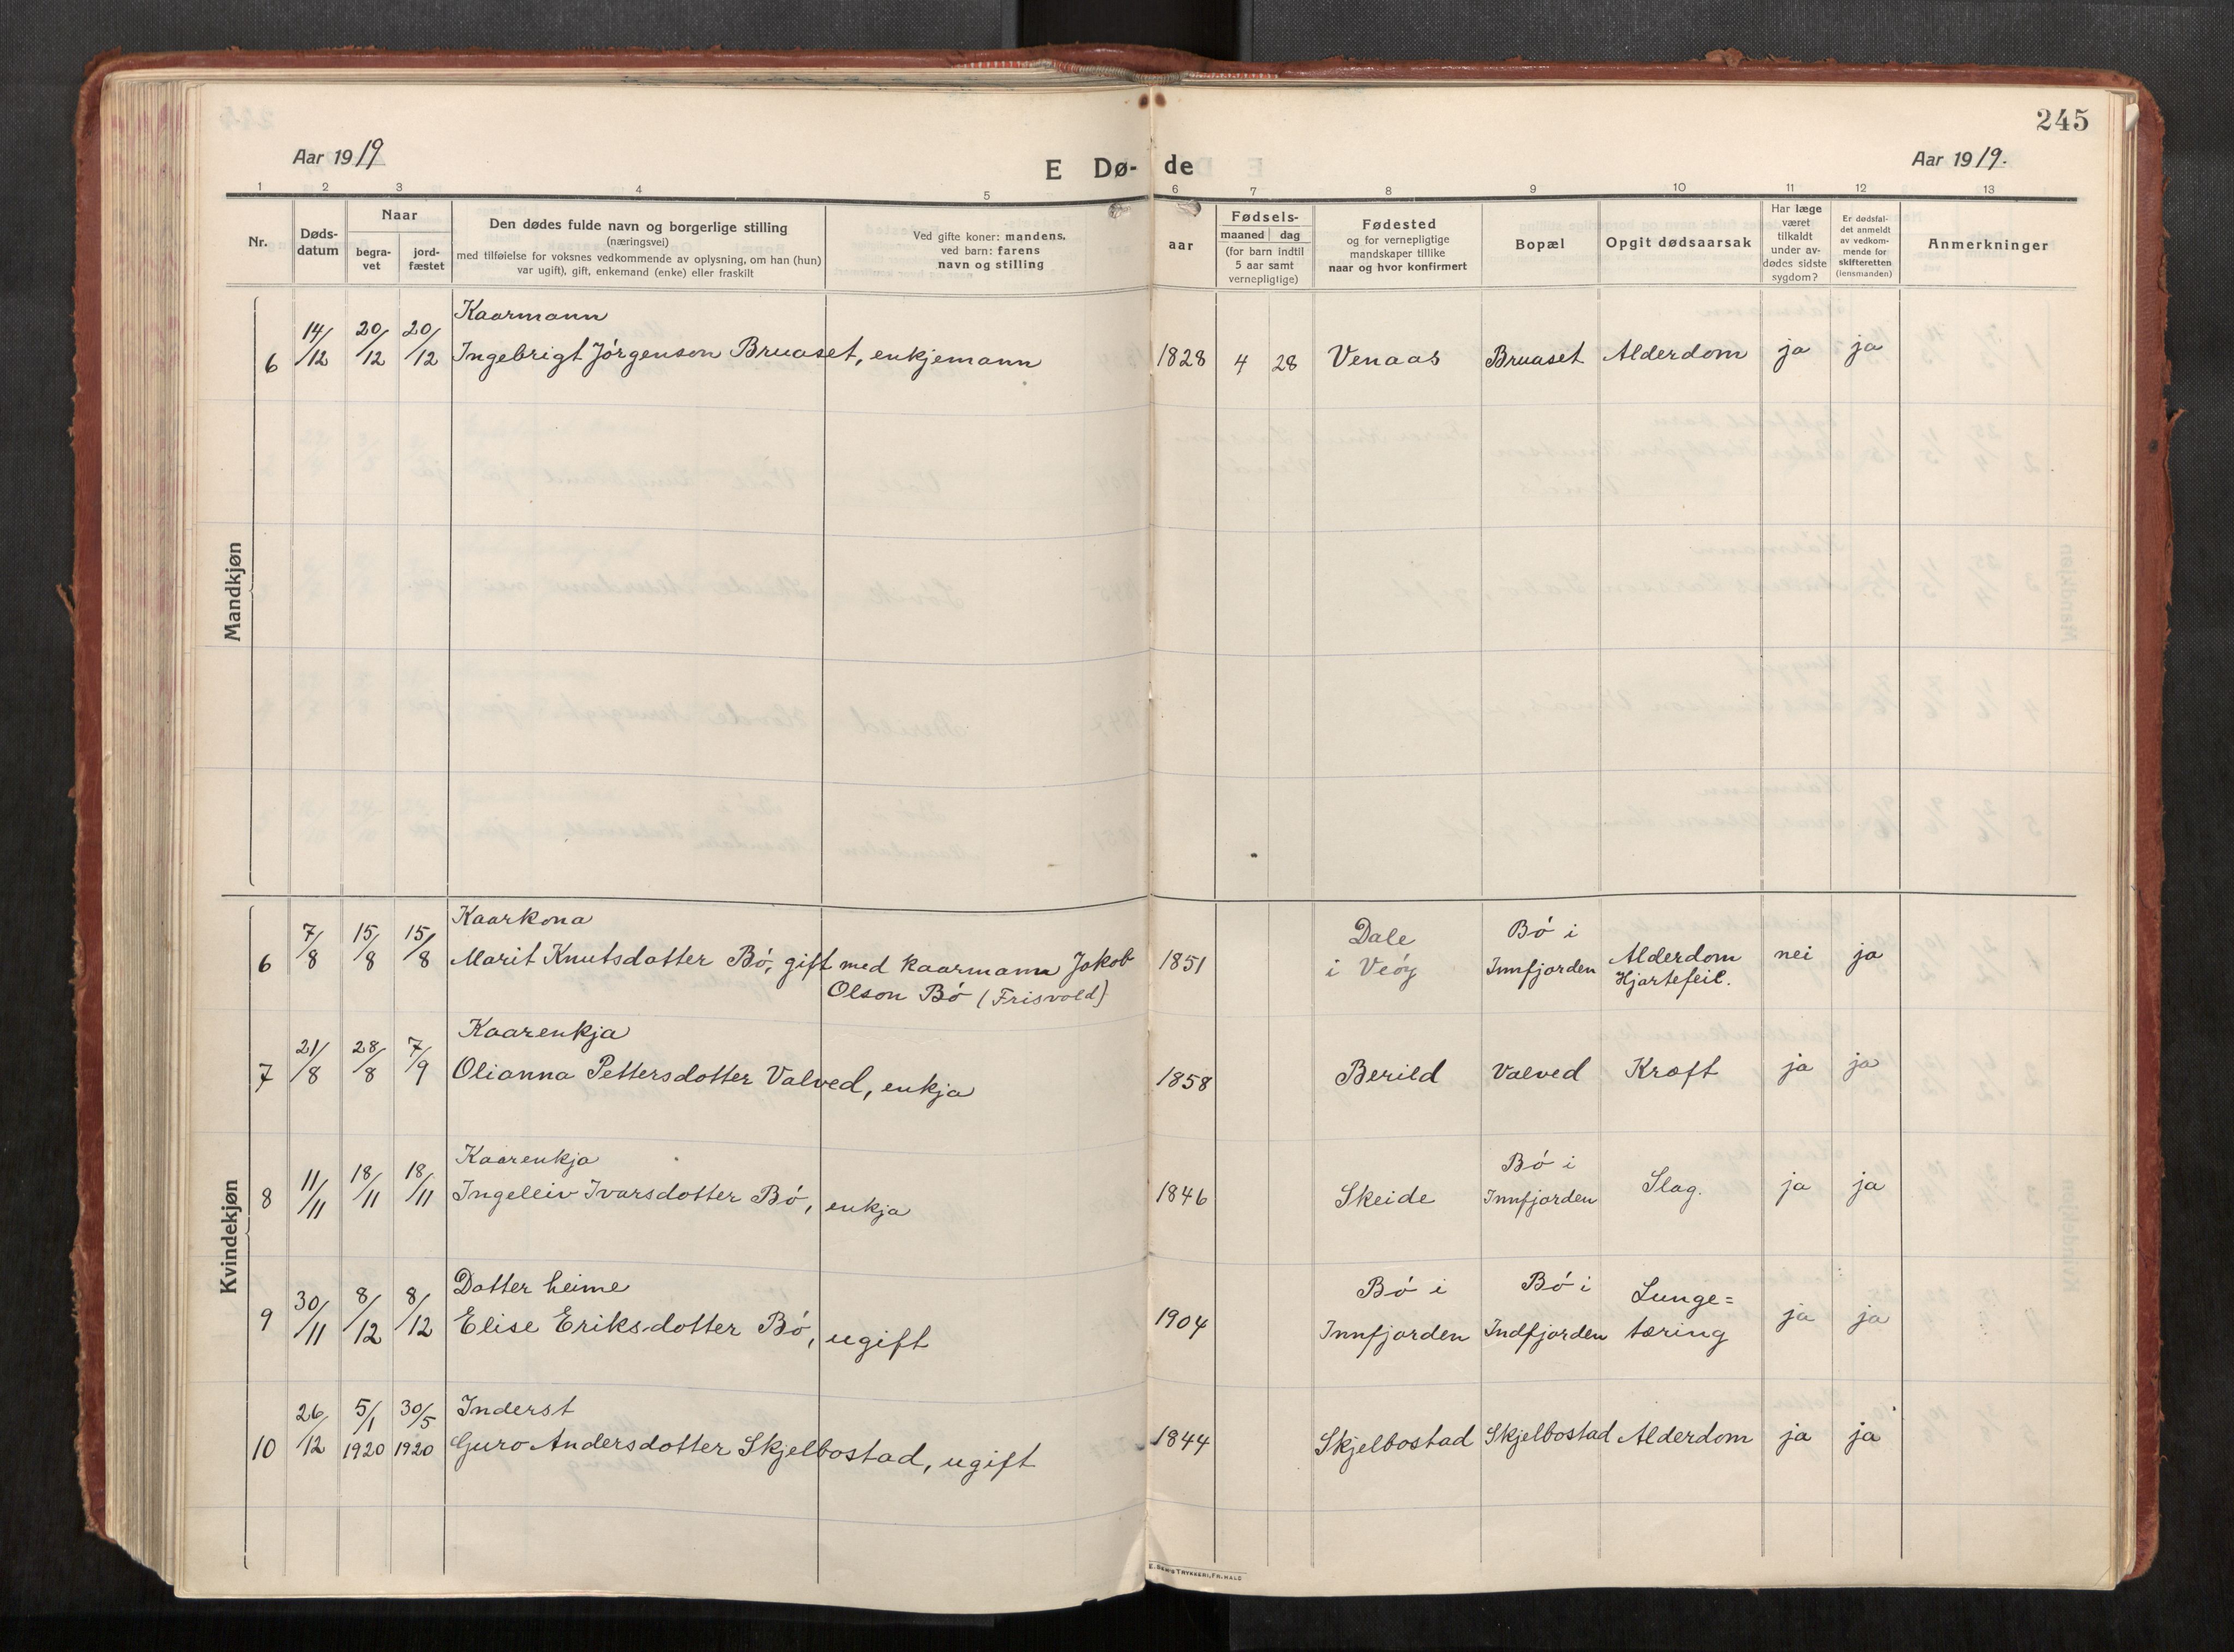 245
Aar 1919
E Dø- de
Aar 1919.
1 2 3 4 5 6 7 8 9 10 11 12 13
Nr.
Døds-
datum
Naar
begra-
vet
jord-
fæstet
Den dødes fulde navn og borgerlige stilling
(næringsvei)
med tilføielse for voksnes vedkommende av oplysning, om han (hun)
var ugift), gift, enkemand (enke) eller fraskilt
Ved gifte koner: mandens,
ved barn: farens
navn og stilling
aar
Fødsels-
maaned dag
(for barn indtil
5 aar samt
vernepligtige)
Fødested
og for vernepligtige
mandskaper tillike
naar og hvor konfirmert
Bopæl
Opgit dødsaarsak
Har læge
været
tilkaldt
under av-
dødes sidste
sygdom?
Er dødsfal-
det anmeldt
av vedkom-
mende for
skifteretten
(lensmanden)
Anmerkninger
Mandkjøn
Kaarmann
6 14/12 20/12 20/12 Ingebrigt Jørgenson Bruaset, enkjemann 1828 4 28 Venaas Bruaset Alderdom ja ja
Kvindekjøn
Kaarkona Dale Bø i
6 7/8 15/8 15/8 Marit Knutsdatter Bø, gift med kaarmann Jakob 1851 i Veøy Innfjorden Alderdom nei ja
Olson Bø (Frisvold) Hjartefeil.
Kaarenkja
7 21/8 28/8 7/9 Olianna Pettersdotter Valved, enkja 1858 Berild Valved Kræft ja ja
Kaarenkja Bø i
8 11/11 18/11 18/11 Ingeleiv Ivarsdotter Bø, enkja 1846 Skeide Innfjorden Slag. ja ja
Dotter heime Bø i Bø i Lunge=
9 30/11 8/12 8/12 Elise Eriksdotter Bø, ugift 1904 Innfjorden Indfjorden tæring ja ja
Inderst
10 26/12 5/1 1920 30/5 1920 Guro Andersdotter Skjelbostad, ugift 1844 Skjelbostad Skjelbostad Alderdom ja ja